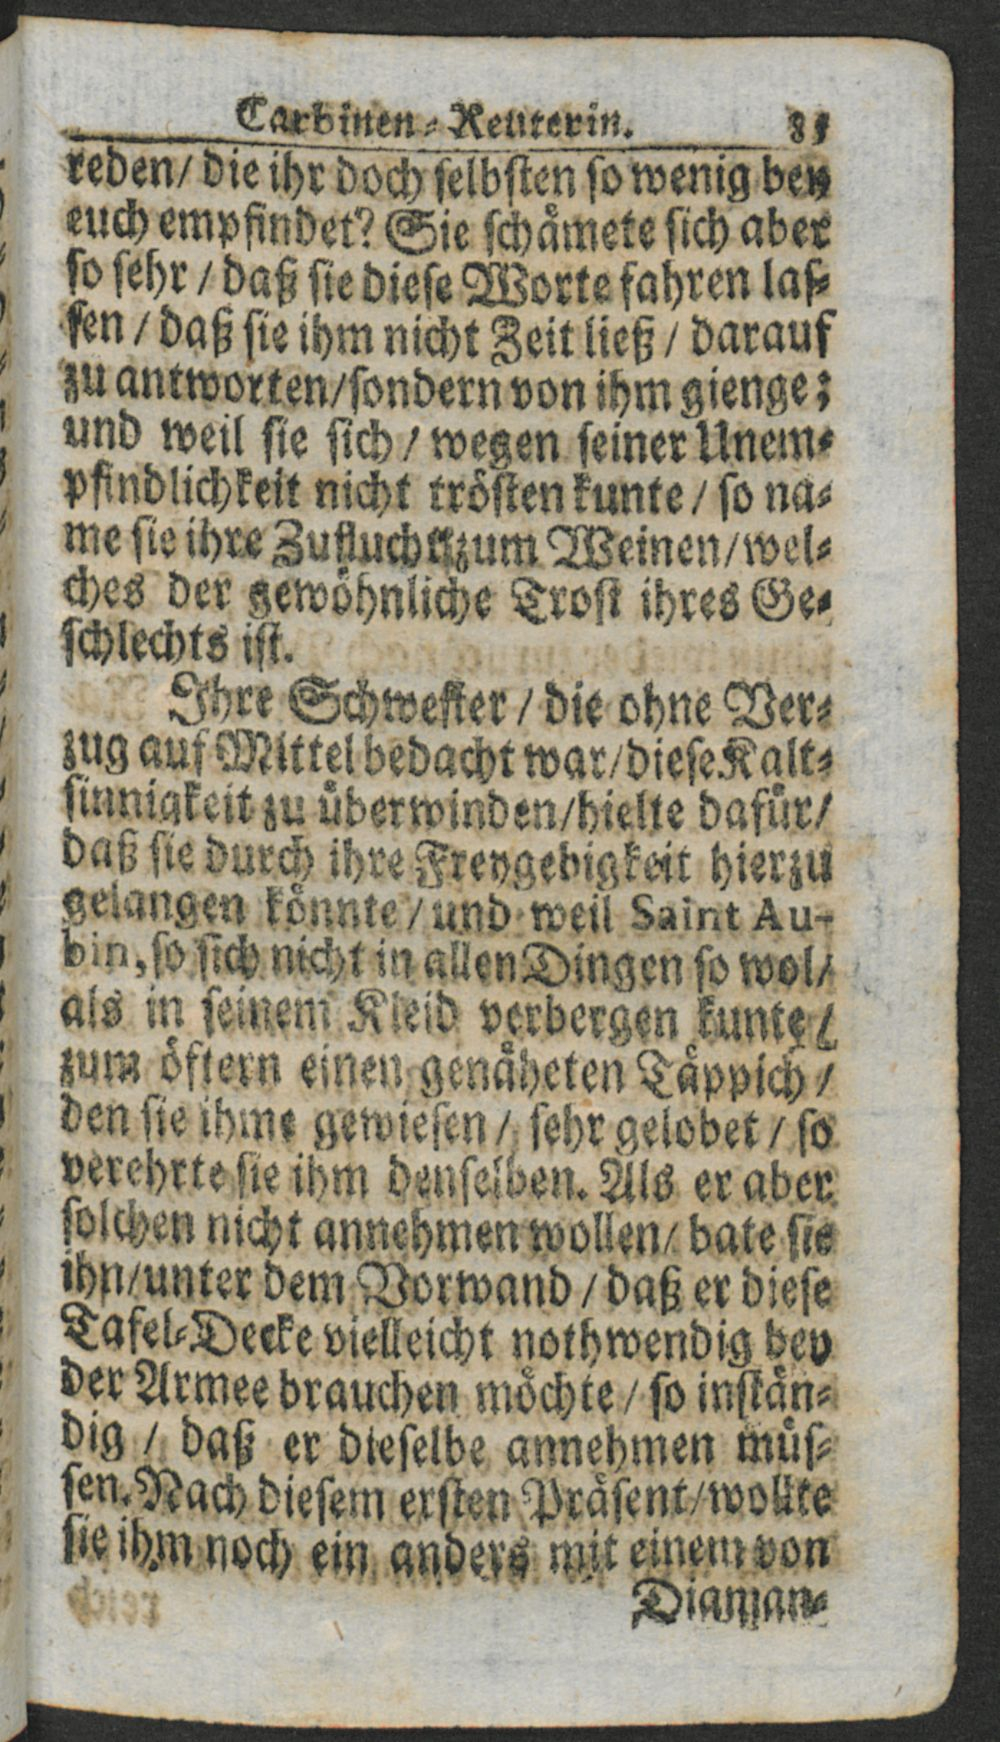 Carbinen-Reuterin. 85
reden/ die ihr doch selbsten so wenig bey
euch empfindet? Sie schåmete sich aber
so sehr / daß sie diese Worte fahren las-
sen / daß sie ihm nicht Zeit ließ / darauf
zu antworten/sondern von ihm gienge;
und weil sie sich / wegen seiner Unem-
pfindlichkeit nicht trösten kunte / so na-
me sie ihre Zuflucht zum Weinen/wel-
ches der gewöhnliche Trost ihres Ge-
schlechts ist.
Ihre Schwester / die ohne Ver-
zug auf Mittel bedacht war/diese Kalt-
sinnigkeit zu überwinden/hielte dafür/
daß sie durch ihre Freygebigkeit hierzu
gelangen könnte / und weil Saint Au-
bin, so sich nicht in allen Dingen so wol/
als in seinem Kleid verbergen kunte /
zum öftern einen genåheten Täppich /
den sie ihme gewiesen / sehr gelobet / so
verehrte sie ihm denselben. Als er aber
solchen nicht annehmen wollen/ bate sie
ihn/unter dem Vorwand / daß er diese
Tafel-Decke vielleicht nothwendig bey
der Armee brauchen möchte / so instän-
dig / daß er dieselbe annehmen müs-
sen. Nach diesem ersten Präsent/wollte
sie ihm noch ein anders mit einem von
Diaman-